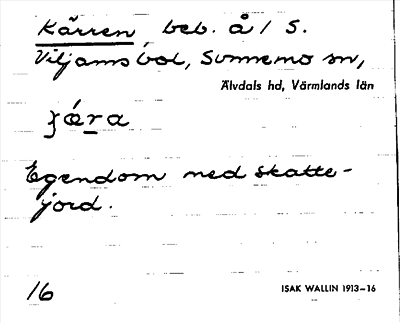 Kärren, beb. å 1 S.
Viljamsbol, Sunnemo sn,
Älvdals hd, Värmlands län
ɟǽra
Egendom med skatte-
jord.
16
ISAK WALLIN 1913–16